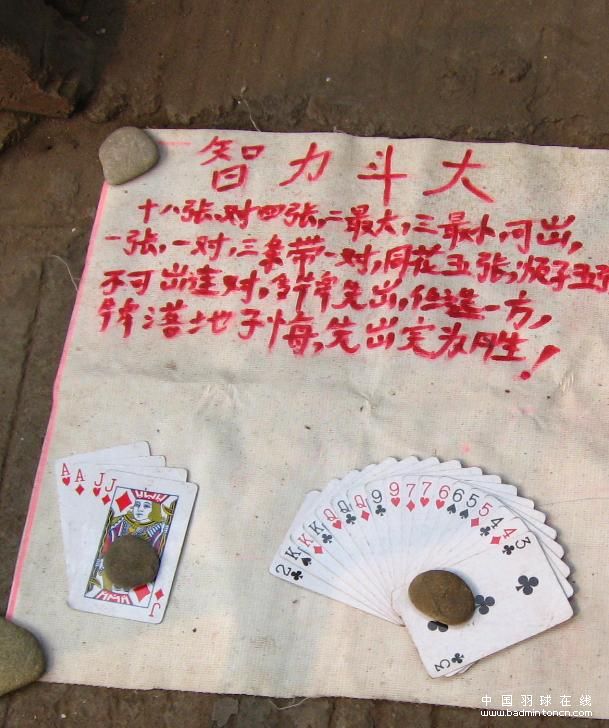 智力斗大
十八张,对四张,二最大,三最小,可出,
一张,一对,三条带一对,同花五张,顺子五张
不可出连对,多牌先出,任选一方,
牌落地子悔,先出完为胜!
A A J J
J
2 K K K Q Q Q 9 9 7 7 6 6 5 5 4 4 3
3
中国羽球在线
www.badmintoncn.com